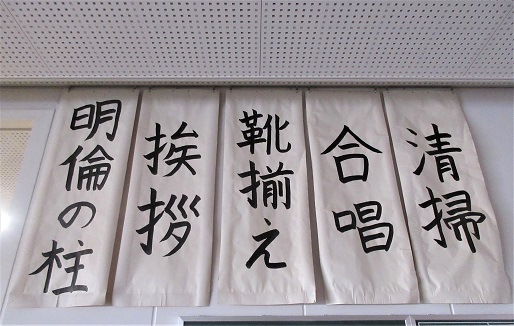 明倫の柱
挨拶
靴揃え
合唱
清掃